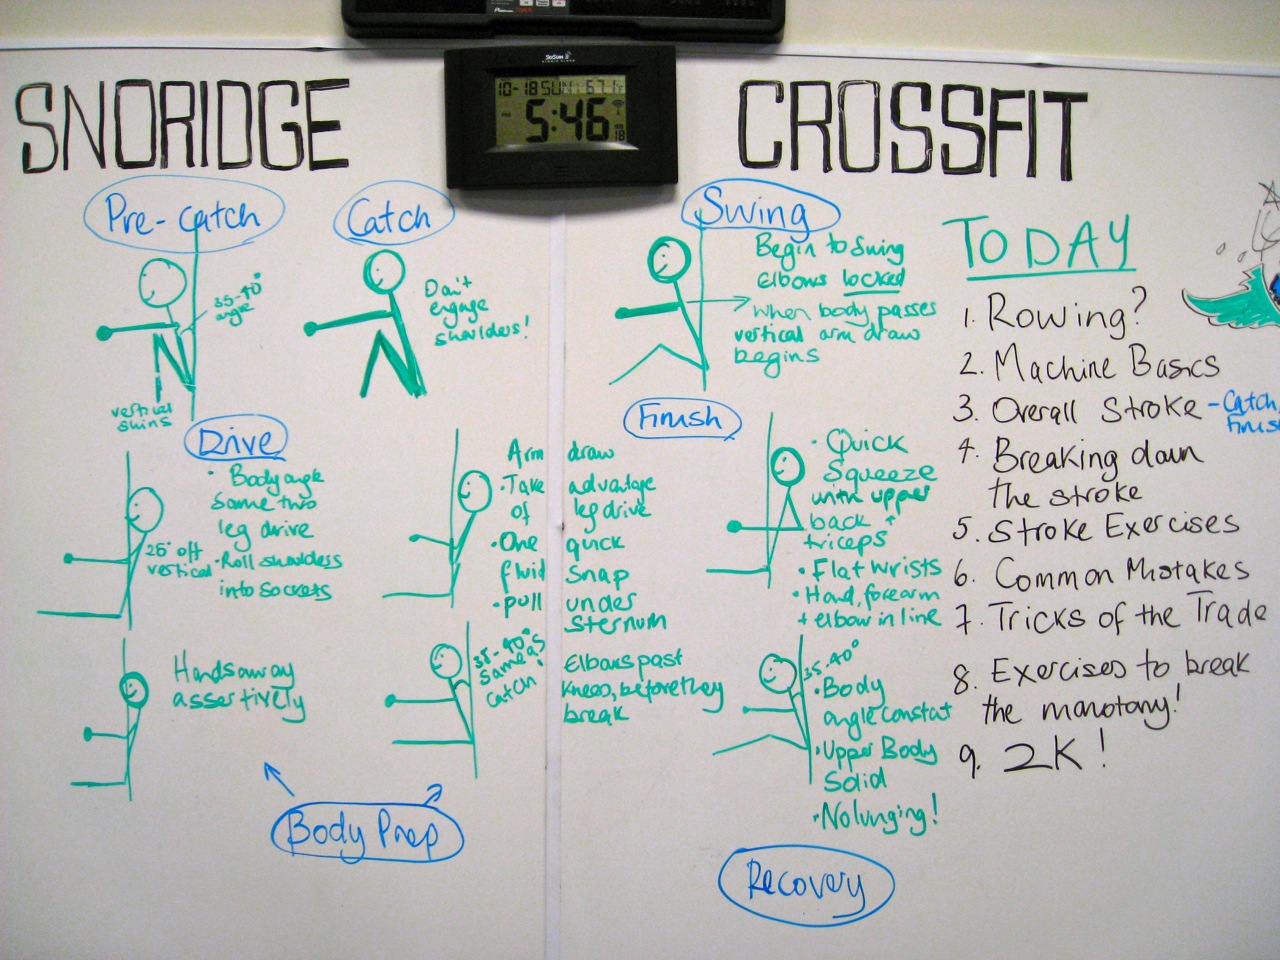 SNORIDGE
CROSSFIT
10-18 SUN
5:46
Pre-catch
35-40°
angle
vertical
shins
Catch
Don't
engage
shoulders!
Swing
Begin to swing
Elbows locked
when body passes
vertical arm draw
begins
Drive
• Body angle
same two
leg drive
• Roll shoulders
into sockets
25° off
vertical
Arm draw
• Take advantage
of leg drive
• One quick
fluid snap
• pull under
sternum
Finish
• Quick
Squeeze
with upper
back +
triceps
• Flat wrists
• Hand, forearm
+ elbow in line
Hands away
assertively
35-40°
same as
catch
Elbows past
knees, before they
break
Body Prep
35-40°
• Body
angle constat
• Upper Body
Solid
• No lunging!
Recovery
TODAY
1. Rowing?
2. Machine Basics
3. Overall Stroke - Catch,
Finish
4. Breaking down
the stroke
5. Stroke Exercises
6. Common Mistakes
7. Tricks of the Trade
8. Exercises to break
the monotony!
9. 2K!